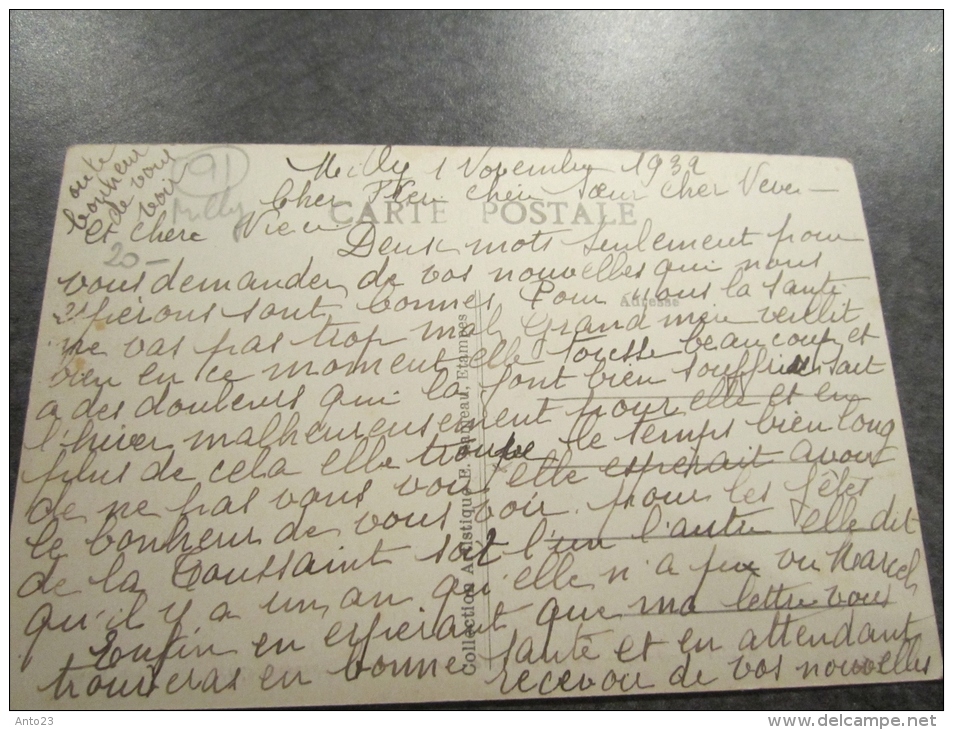 Milly 1 Novembre 1932
Cher Frère chère Soeur cher Neveu
et chère Nièce
CARTE POSTALE
Deux mots seulement pour
vous demander de vos nouvelles qui nous
espérons sont bonnes, Pour nous la santé
ne vas pas trop mal, Grand mère veillit
bien en ce moment elle tousse beaucoup et
a des douleurs qui la font bien souffrir sait
l'hiver malheureusement pour elle et en
plus de cela elle trouve le temps bien long
de ne pas vous voir elle esperait avoir
le bonheur de vous voir pour les fêtes
de la Toussaint soit l'un l'autre elle dit
qu'il y a un an qu'elle n'a pu vu Marcel
Enfin en espérant que ma lettre vous
trouveras en bonne santé et en attendant
recevoir de vos nouvelles
bonheur
de vous
voir
91
Milly
20-
Adresse
Collection Artistique Etampes
Anto23
www.delcampe.net